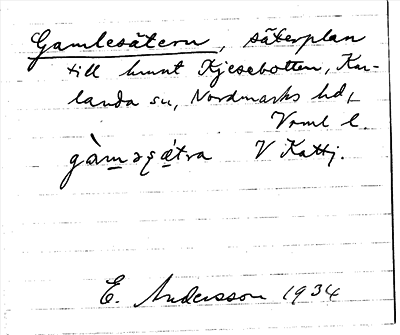 Gamlesätern, säterplan
till hmnt Kjesebotten, Kar-
landa sn, Nordmarks hd,
Vrml l.
gàm̲əsǽ̲tra V Kattj.
E. Andersson 1934